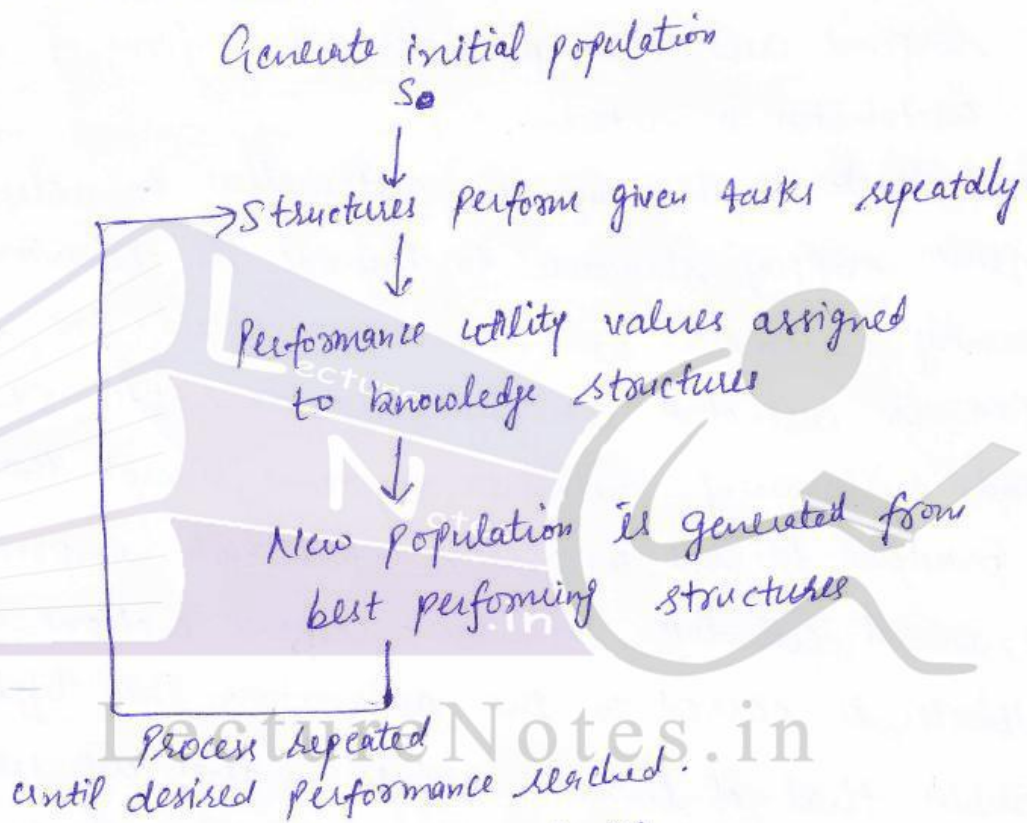 Generate initial population
S0
Structures perform given tasks repeatdly
Performance utility values assigned
to knowledge structures
New population is generated from
best performing structures
Process repeated
until desired performance reached.
Lecture
Notes
.in
LectureNotes.in